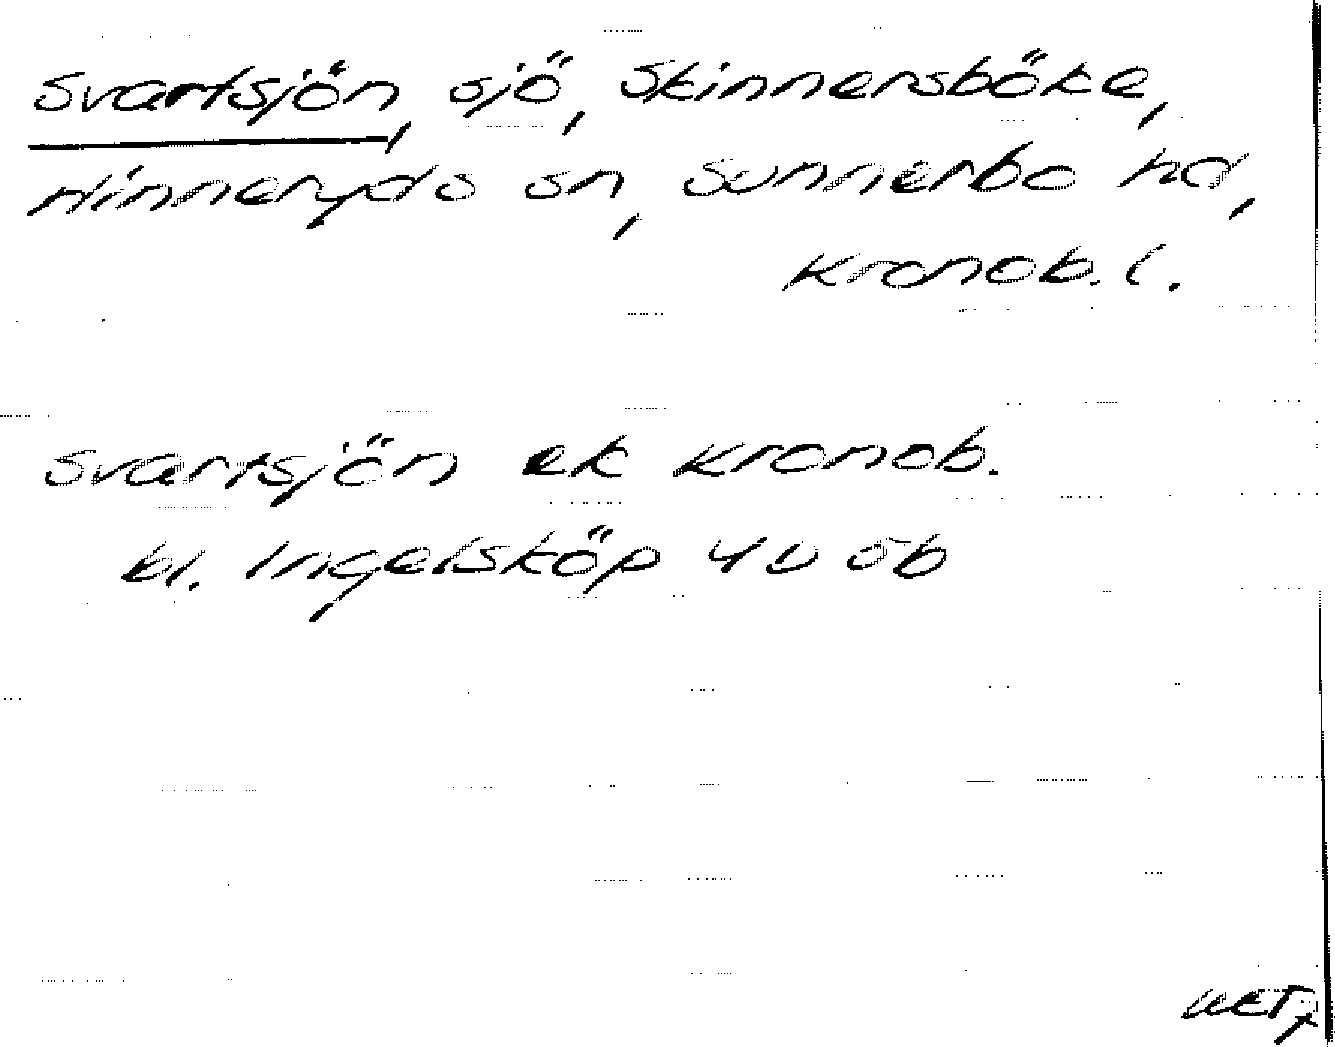 Svartsjön, sjö, Skinnersböke,
Hinneryds sn, Sunnerbo hd,
Kronob. l.
Svartsjön ek Kronob.
bl. Ingelsköp 4D 5b